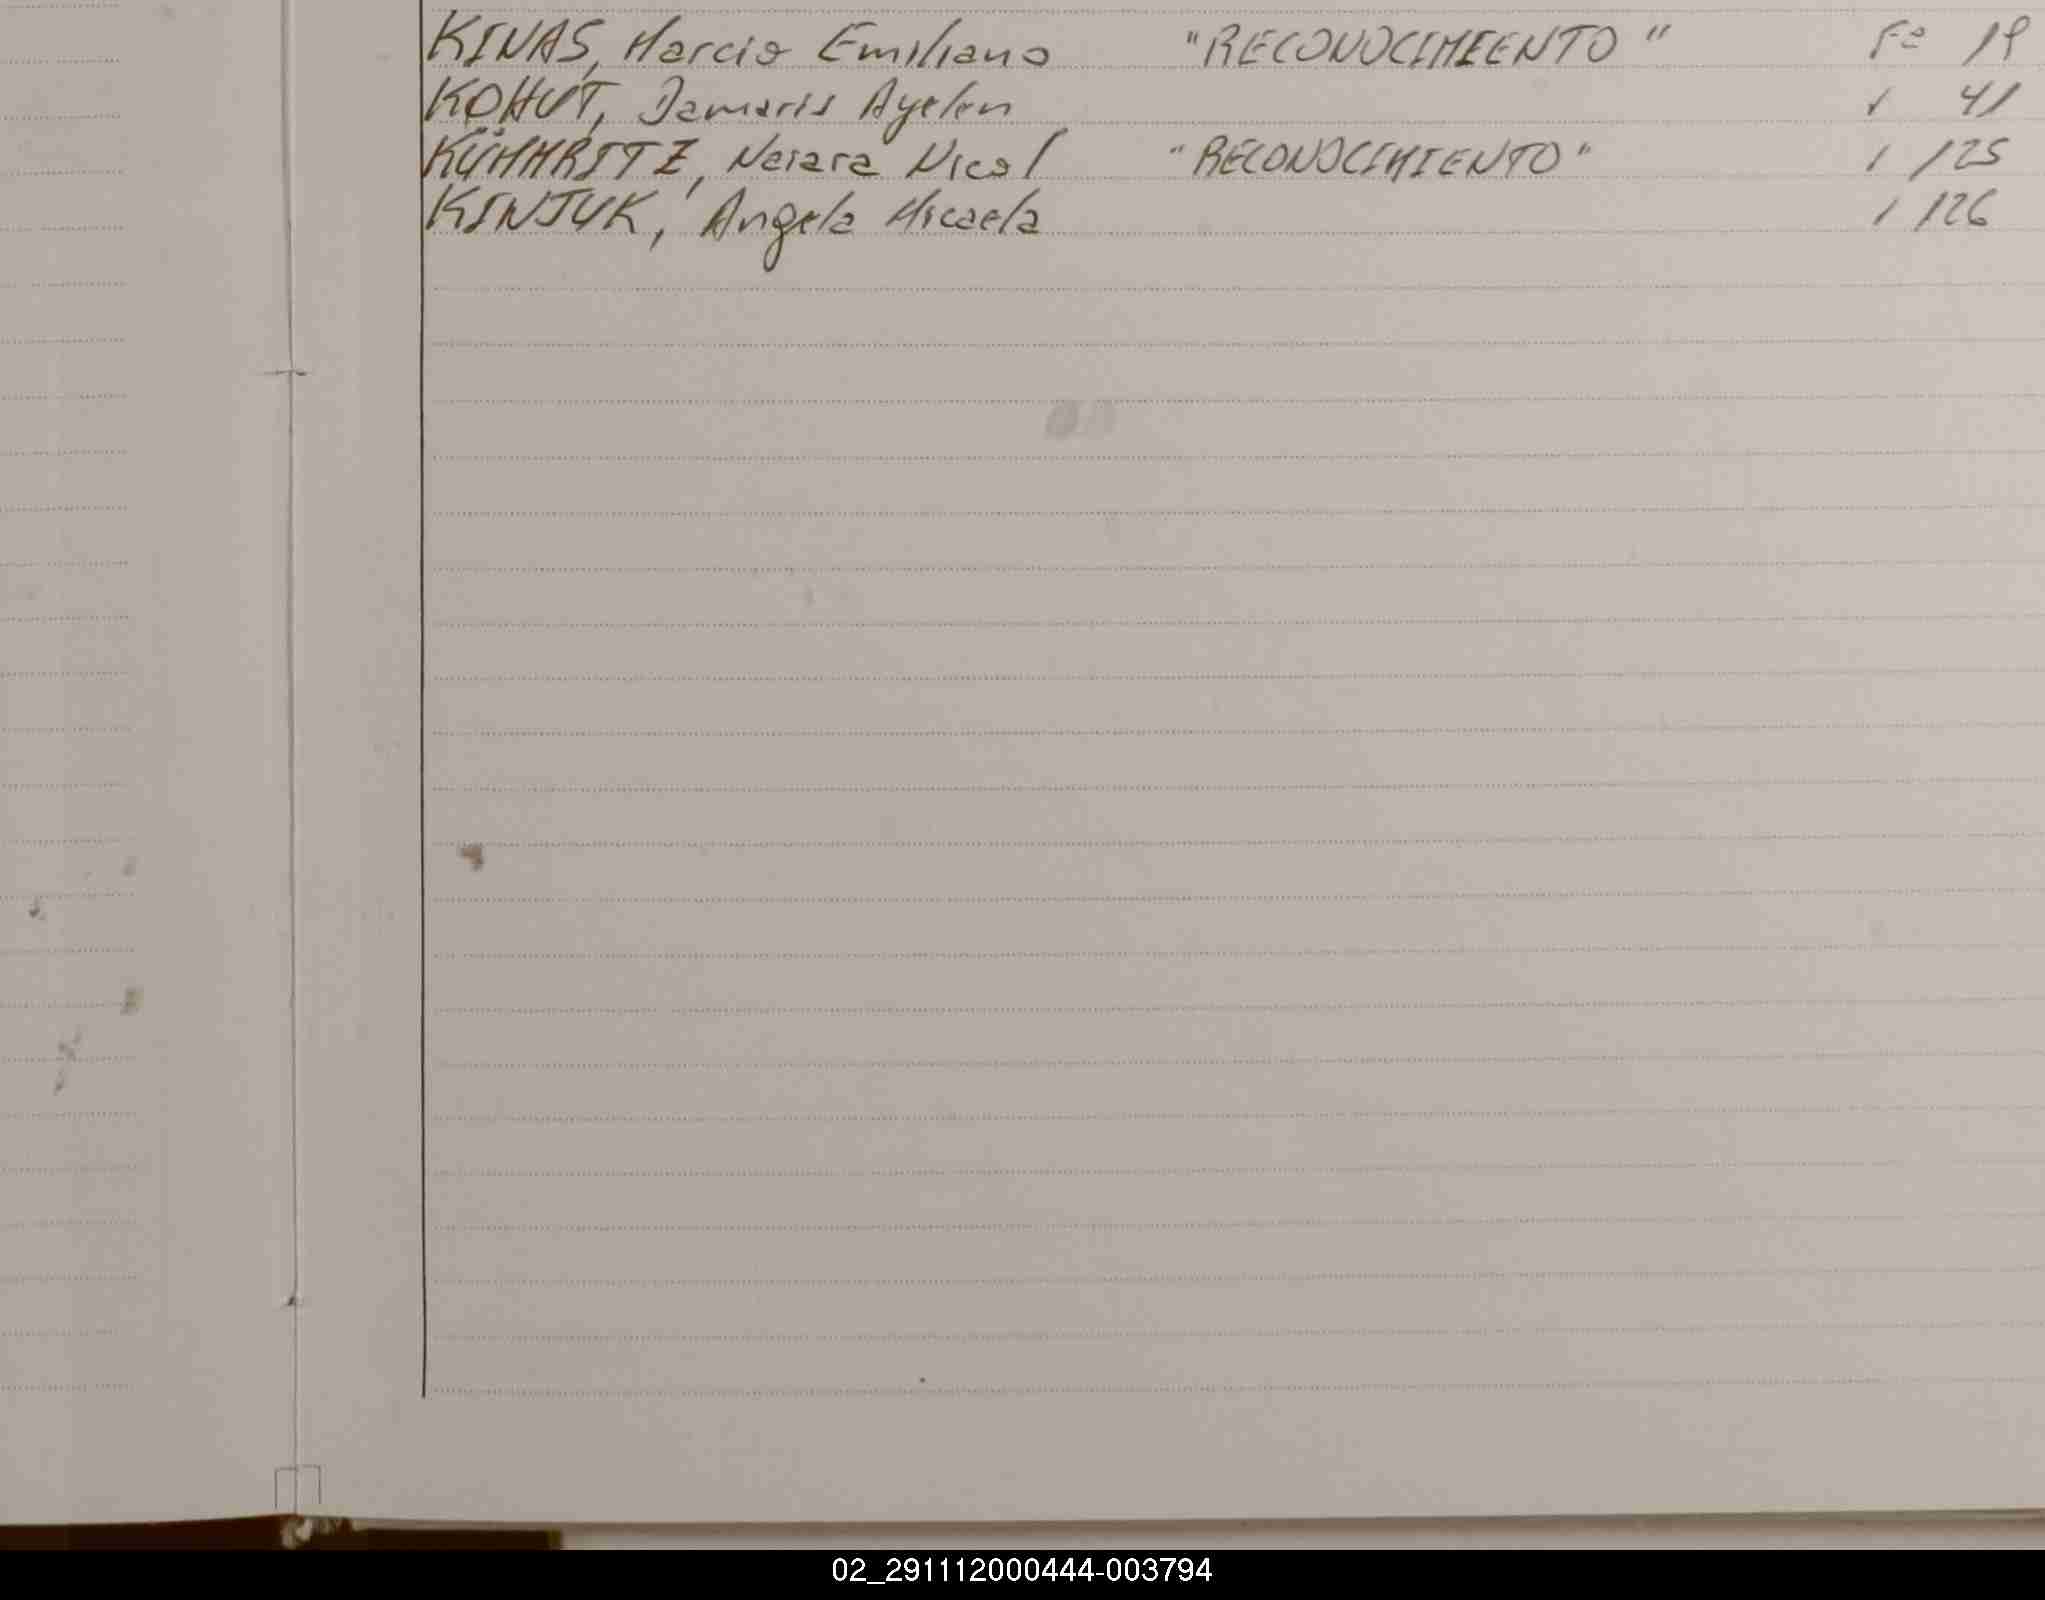 KINAS, Marcio Emiliano "RECONOCIMIENTO" Fº 19
KOHUT, Damaris Ayelen " 41
KÜMMRITZ, Naiara Nicol "RECONOCIMIENTO" " 125
KINJUK, Angela Micaela " 126
02_291112000444-003794